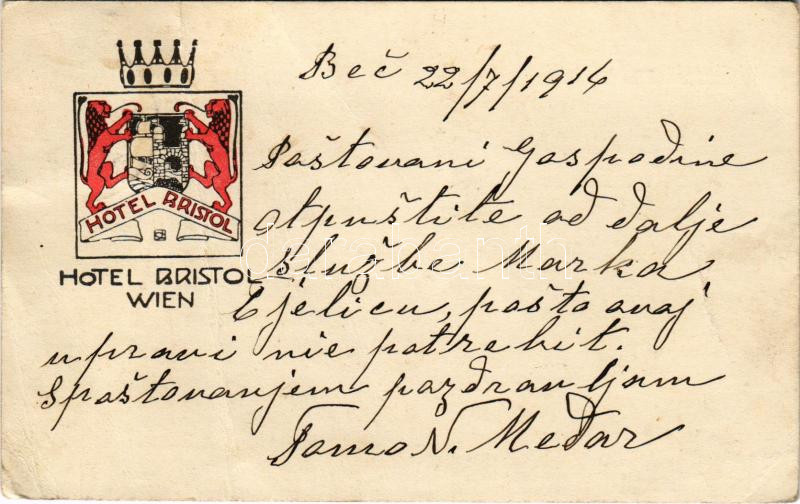 Beč 22/7/1914
HOTEL BRISTOL
Poštovani Gospodine
otpuštite od dalje
službe Marka
HOTEL BRISTOL
WIEN
Cjelicu, pošto ovaj
upravi nie potrebit.
Spoštovanjem pozdravljam
Tomo V. Medar
darabanth